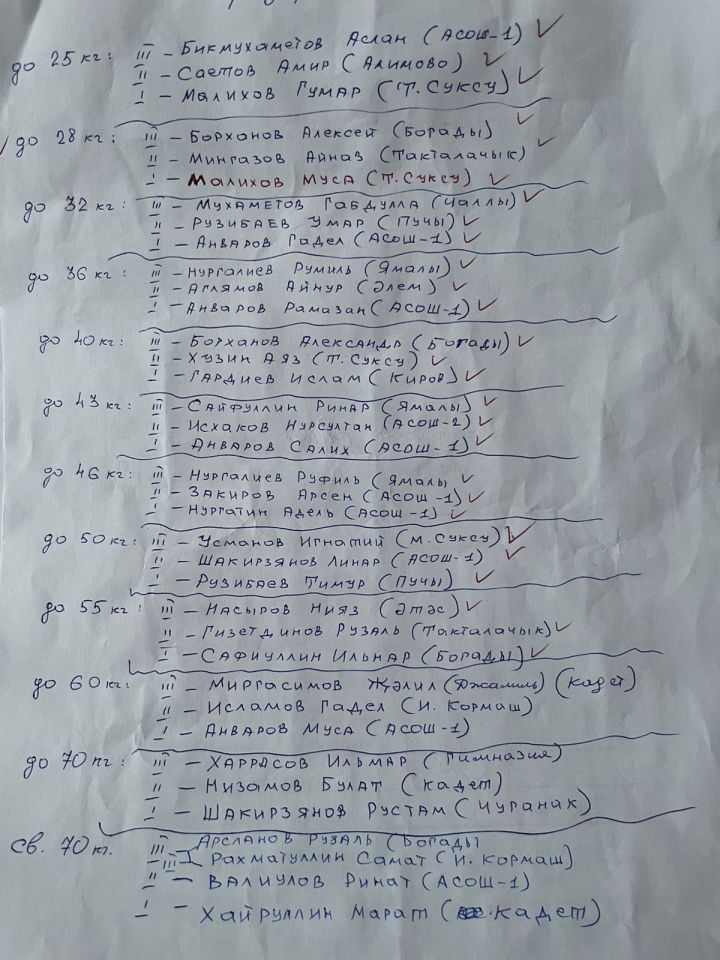 до 25 кг: III – Бикмухаметов Аслан (АСОШ-1)
II – Саетов Амир (Алимово)
I – Малихов Гумар (Т. Суксу)
до 28 кг: III – Борханов Алексей (Богады)
II – Мингазов Айнав (Такталачык)
I – Малихов Муса (Т. Суксу)
до 32 кг: III – Мухаметов Габдулла (Чаллы)
II – Рузибаев Умар (Пучы)
I – Анваров Гадел (АСОШ-1)
до 36 кг: III – Нургалиев Румиль (Ямалы)
II – Аглямов Айнур (Әлем)
I – Анваров Рамазан (АСОШ-1)
до 40 кг: III – Борханов Александр (Богады)
II – Хузин Аяз (Т. Суксу)
I – Гардиев Ислам (Киров)
до 43 кг: III – Сайфуллин Ринар (Ямалы)
II – Исхаков Нурсултан (АСОШ-2)
I – Анваров Салих (АСОШ-1)
до 46 кг: III – Нургалиев Руфиль (Ямалы
II – Закиров Арсен (АСОШ-1)
I – Нургатин Адель (АСОШ-1)
до 50 кг: III – Усманов Игнатий (М. Суксу)
II – Шакирзянов Линар (АСОШ-1)
I – Рузибаев Тимур (Пучы)
до 55 кг: III – Насыров Нияз (Әтәс)
II – Гизетдинов Рузаль (Такталачык)
I – Сафиуллин Ильнар (Богады)
до 60 кг: III – Миргасимов Җәлил (Джамиль) (кадет)
II – Исламов Гадел (И. Кормаш)
I – Анваров Муса (АСОШ-1)
до 70 кг: III – Харрасов Ильмар (Гимназия)
II – Низамов Булат (кадет)
I – Шакирзянов Рустам (Чуганак)
св. 70 кг. III – Арсланов Рузаль (Богады
III – Рахматуллин Самат (И. Кормаш)
II – Валиулов Ринат (АСОШ-1)
I – Хайруллин Марат (кадет)